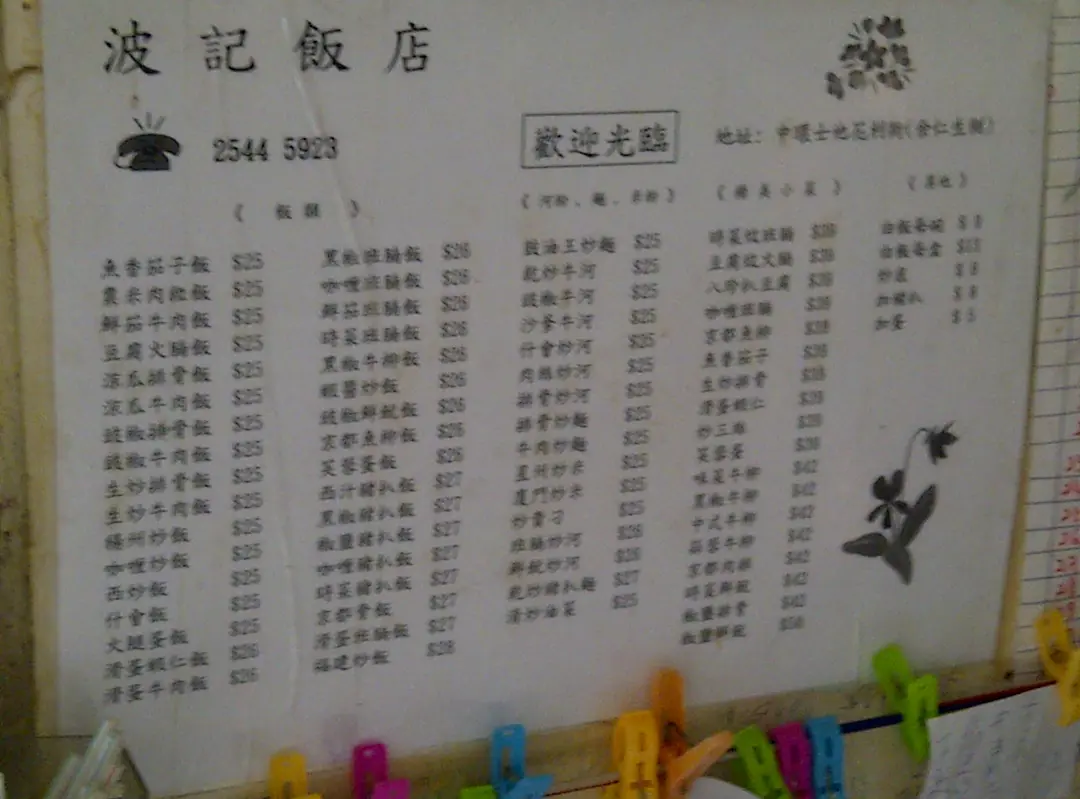 波記飯店
2544 5923
歡迎光臨
地址：中環士他花利街(余仁生側)
《 飯類 》
魚香茄子飯 $25
粟米肉粒飯 $25
鮮茄牛肉飯 $25
豆腐火腩飯 $25
涼瓜排骨飯 $25
涼瓜牛肉飯 $25
豉椒排骨飯 $25
豉椒牛肉飯 $25
生炒排骨飯 $25
生炒牛肉飯 $25
楊州炒飯 $25
咖喱炒飯 $25
西炒飯 $25
什會飯 $25
火腿蛋飯 $25
滑蛋蝦仁飯 $26
滑蛋牛肉飯 $26
黑椒班腩飯 $26
咖喱班腩飯 $26
鮮茄班腩飯 $26
時菜班腩飯 $26
黑椒牛柳飯 $26
蝦醬炒飯 $26
豉椒鮮魷飯 $26
京都魚柳飯 $26
芙蓉蛋飯 $26
西汁豬扒飯 $27
黑椒豬扒飯 $27
椒鹽豬扒飯 $27
咖喱豬扒飯 $27
時菜豬扒飯 $27
京都骨飯 $27
滑蛋班腩飯 $27
福建炒飯 $28
《 河粉、麵、米粉 》
豉油王炒麵 $25
乾炒牛河 $25
豉椒牛河 $25
沙爹牛河 $25
什會炒河 $25
肉絲炒河 $25
排骨炒河 $25
排骨炒麵 $25
牛肉炒麵 $25
星州炒米 $25
廈門炒米 $25
炒貴刁 $25
班腩炒河 $26
鮮魷炒河 $26
乾炒豬扒麵 $27
清炒油菜 $25
《 精美小菜 》
時菜炆班腩
豆腐炆火腩
八珍扒豆腐
咖喱班腩
京都魚柳
魚香茄子
生炒排骨
滑蛋蝦仁
炒三絲
芙蓉蛋
味菜牛柳 $42
黑椒牛柳 $42
中式牛柳 $42
茄蓉牛柳 $42
京都肉排 $42
時菜鮮魷 $42
椒鹽排骨 $42
椒鹽鮮魷
《 其他 》
白飯每碗
白飯每盒
炒底
加豬扒
加蛋 $5